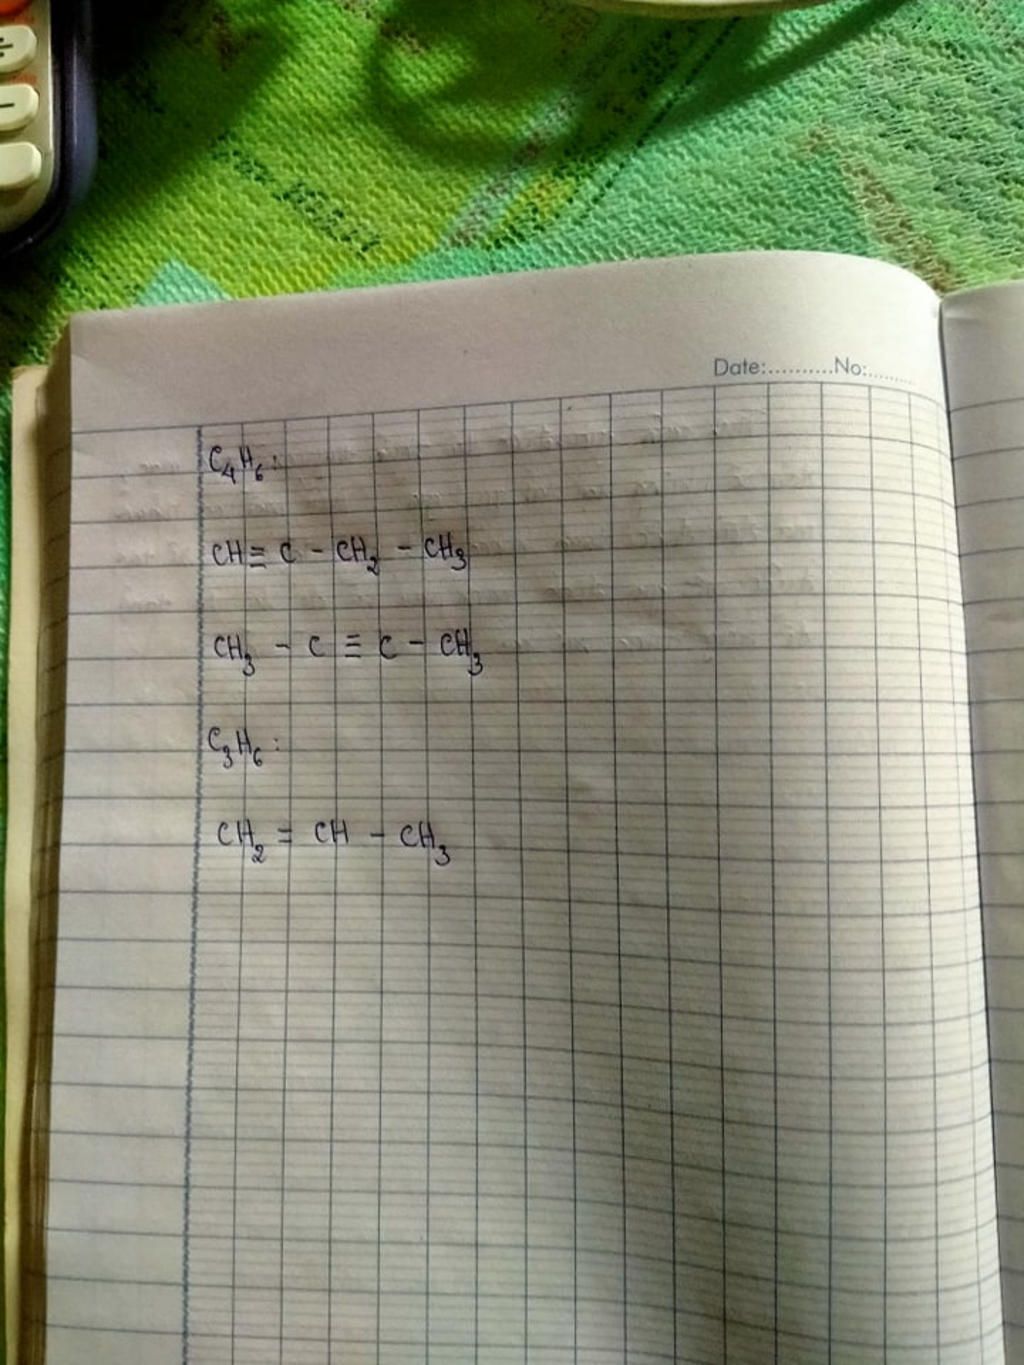 Date:..........No:.........
C₄H₆:
CH ≡ C - CH₂ - CH₃
CH₃ - C ≡ C - CH₃
C₃H₆:
CH₂ = CH - CH₃